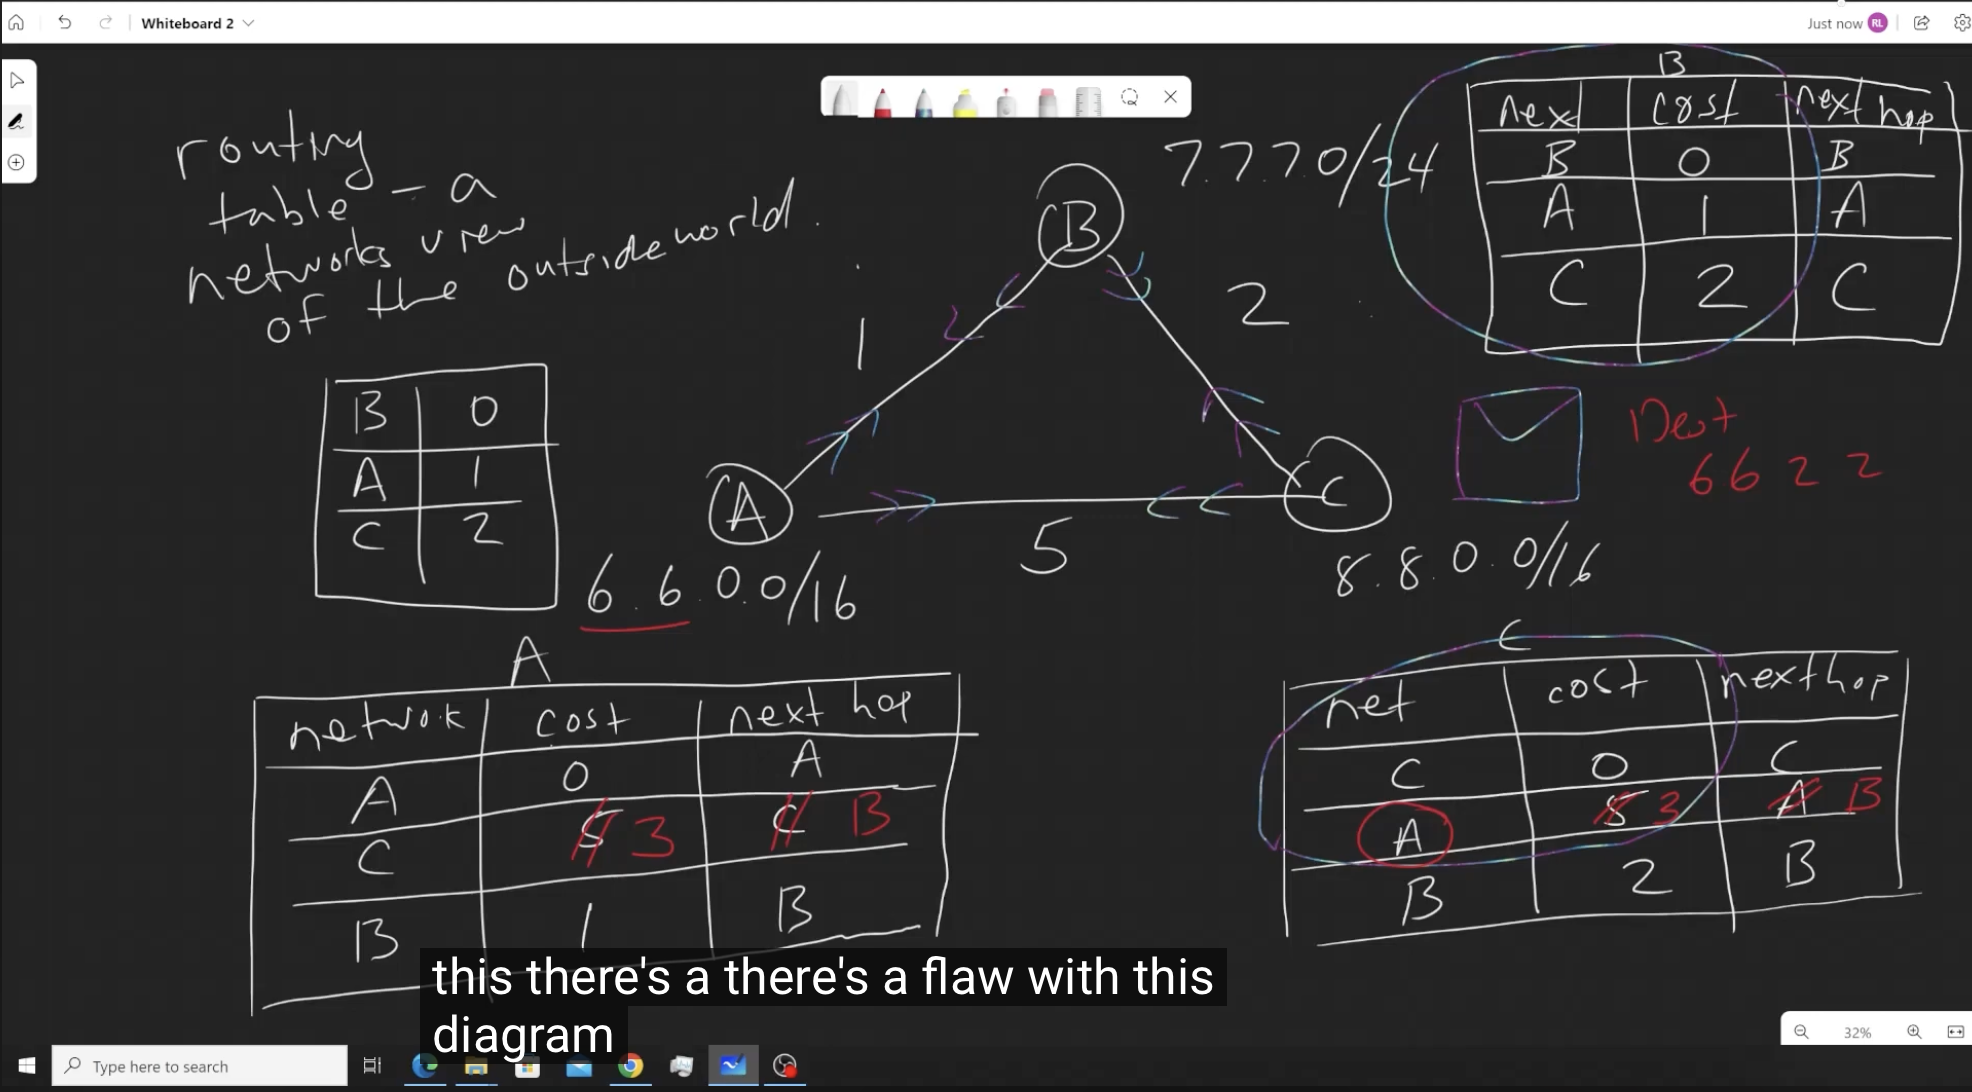 Whiteboard 2
Just now RL
routing
table - a
networks view
of the outside world.
B 0
A 1
C 2
B
7.7.7.0/24
1
2
A
C
5
6.6.0.0/16
8.8.0.0/16
B
next cost next hop
B 0 B
A 1 A
C 2 C
Dest
6 6 2 2
A
network cost next hop
A 0 A
C 5 3 C B
B 1 B
C
net cost nexthop
C 0 C
A 5 3 A B
B 2 B
this there's a there's a flaw with this
diagram
32%
Type here to search